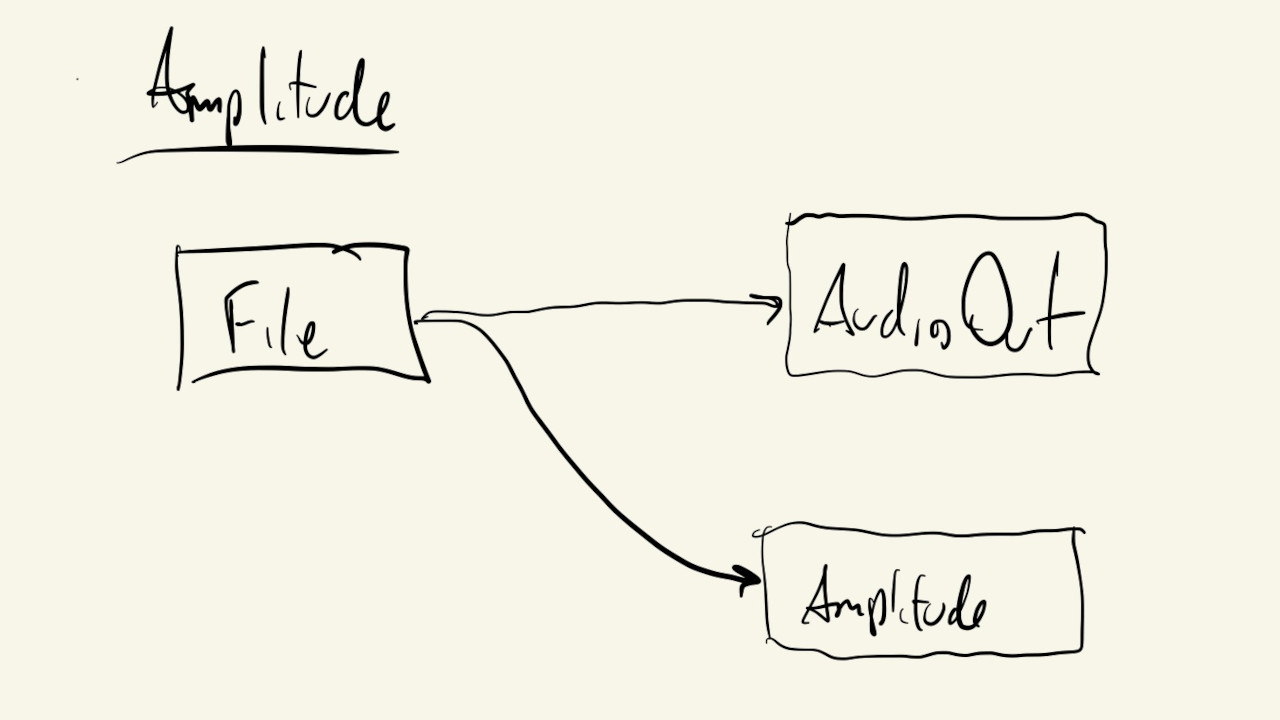 Amplitude
File
AudioOut
Amplitude